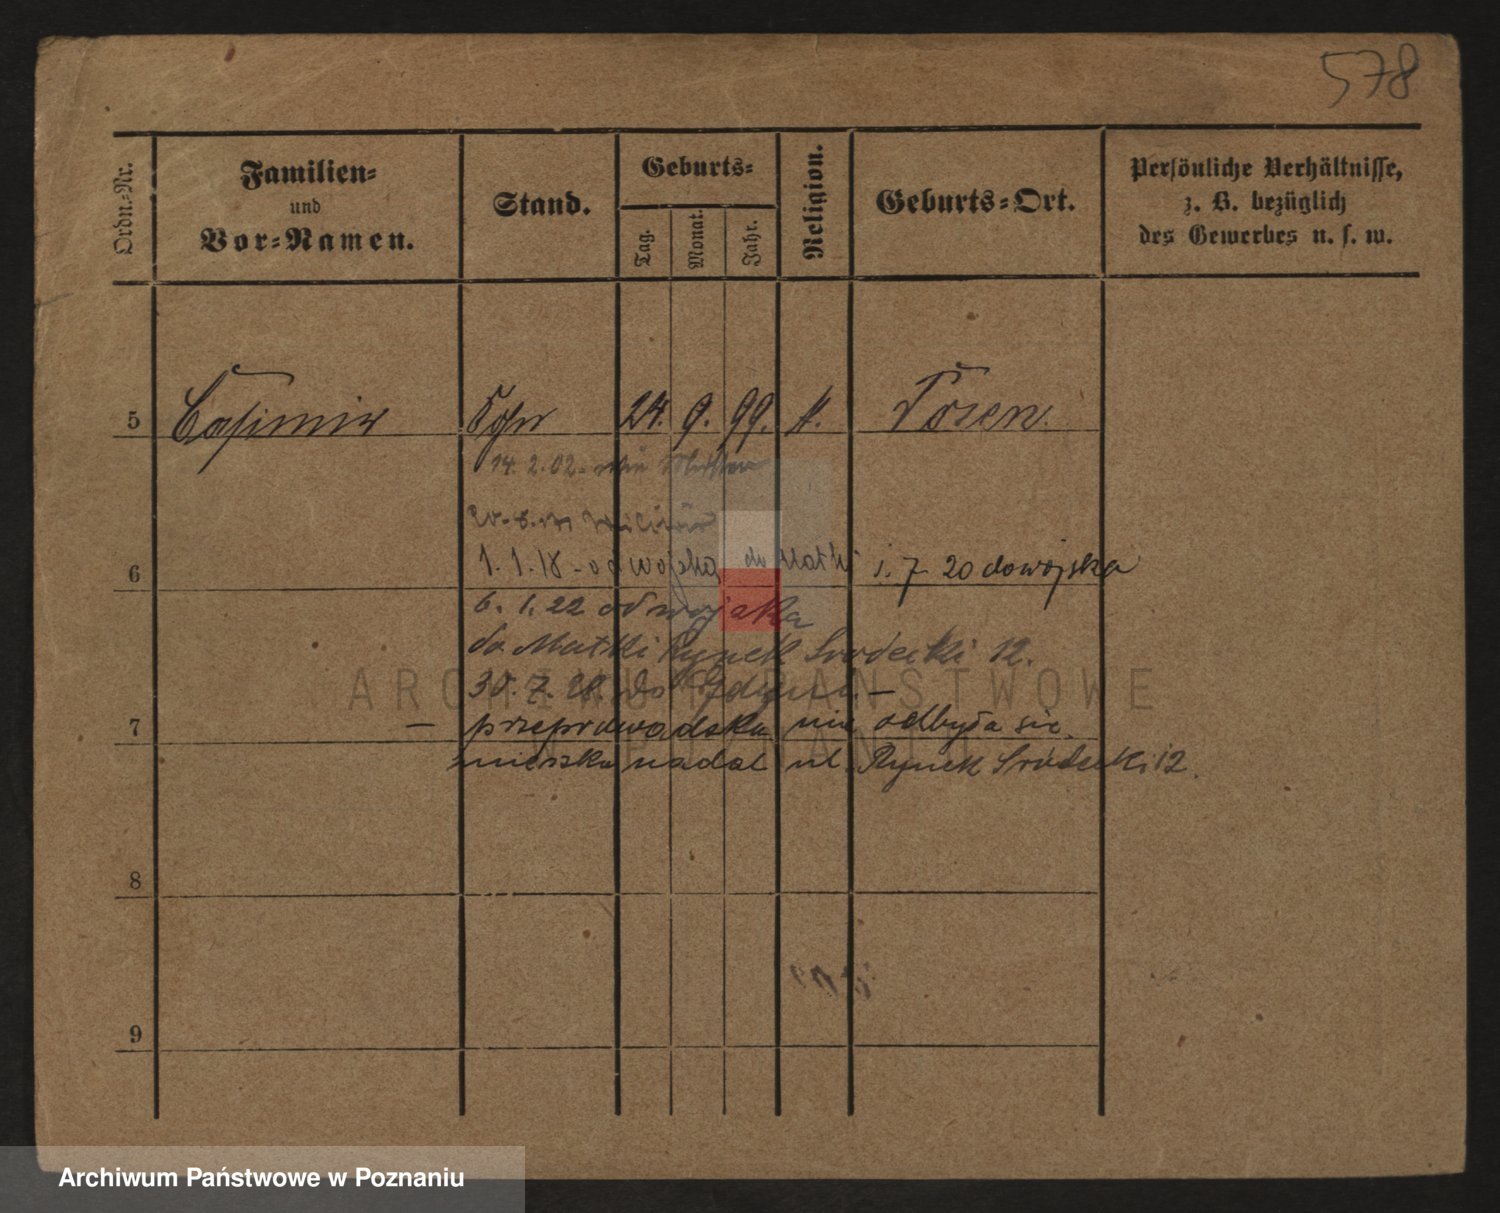 578
Ordn.-Nr.
Familien-
und
Vor-Namen.
Stand.
Geburts-
Tag.
Monat.
Jahr.
Religion.
Geburts-Ort.
Persönliche Verhältnisse,
z. B. bezüglich
des Gewerbes u. s. w.
5 Casimir 24. 9. 99. k. Posen.
14. 2. 02.
Militär
1. 1. 18 - od wojska do Matki 1. 7. 20 do wojska
6
6. 1. 22 od wojska
do Matki Rynek Srodecki 12.
30. 7. 28 do Gdyni. —
7 — przeprowadzka nie odbyła się.
mieszka nadal ul. Rynek Śródecki 12.
8
9
ARCHIWUM PAŃSTWOWE
W POZNANIU
Archiwum Państwowe w Poznaniu